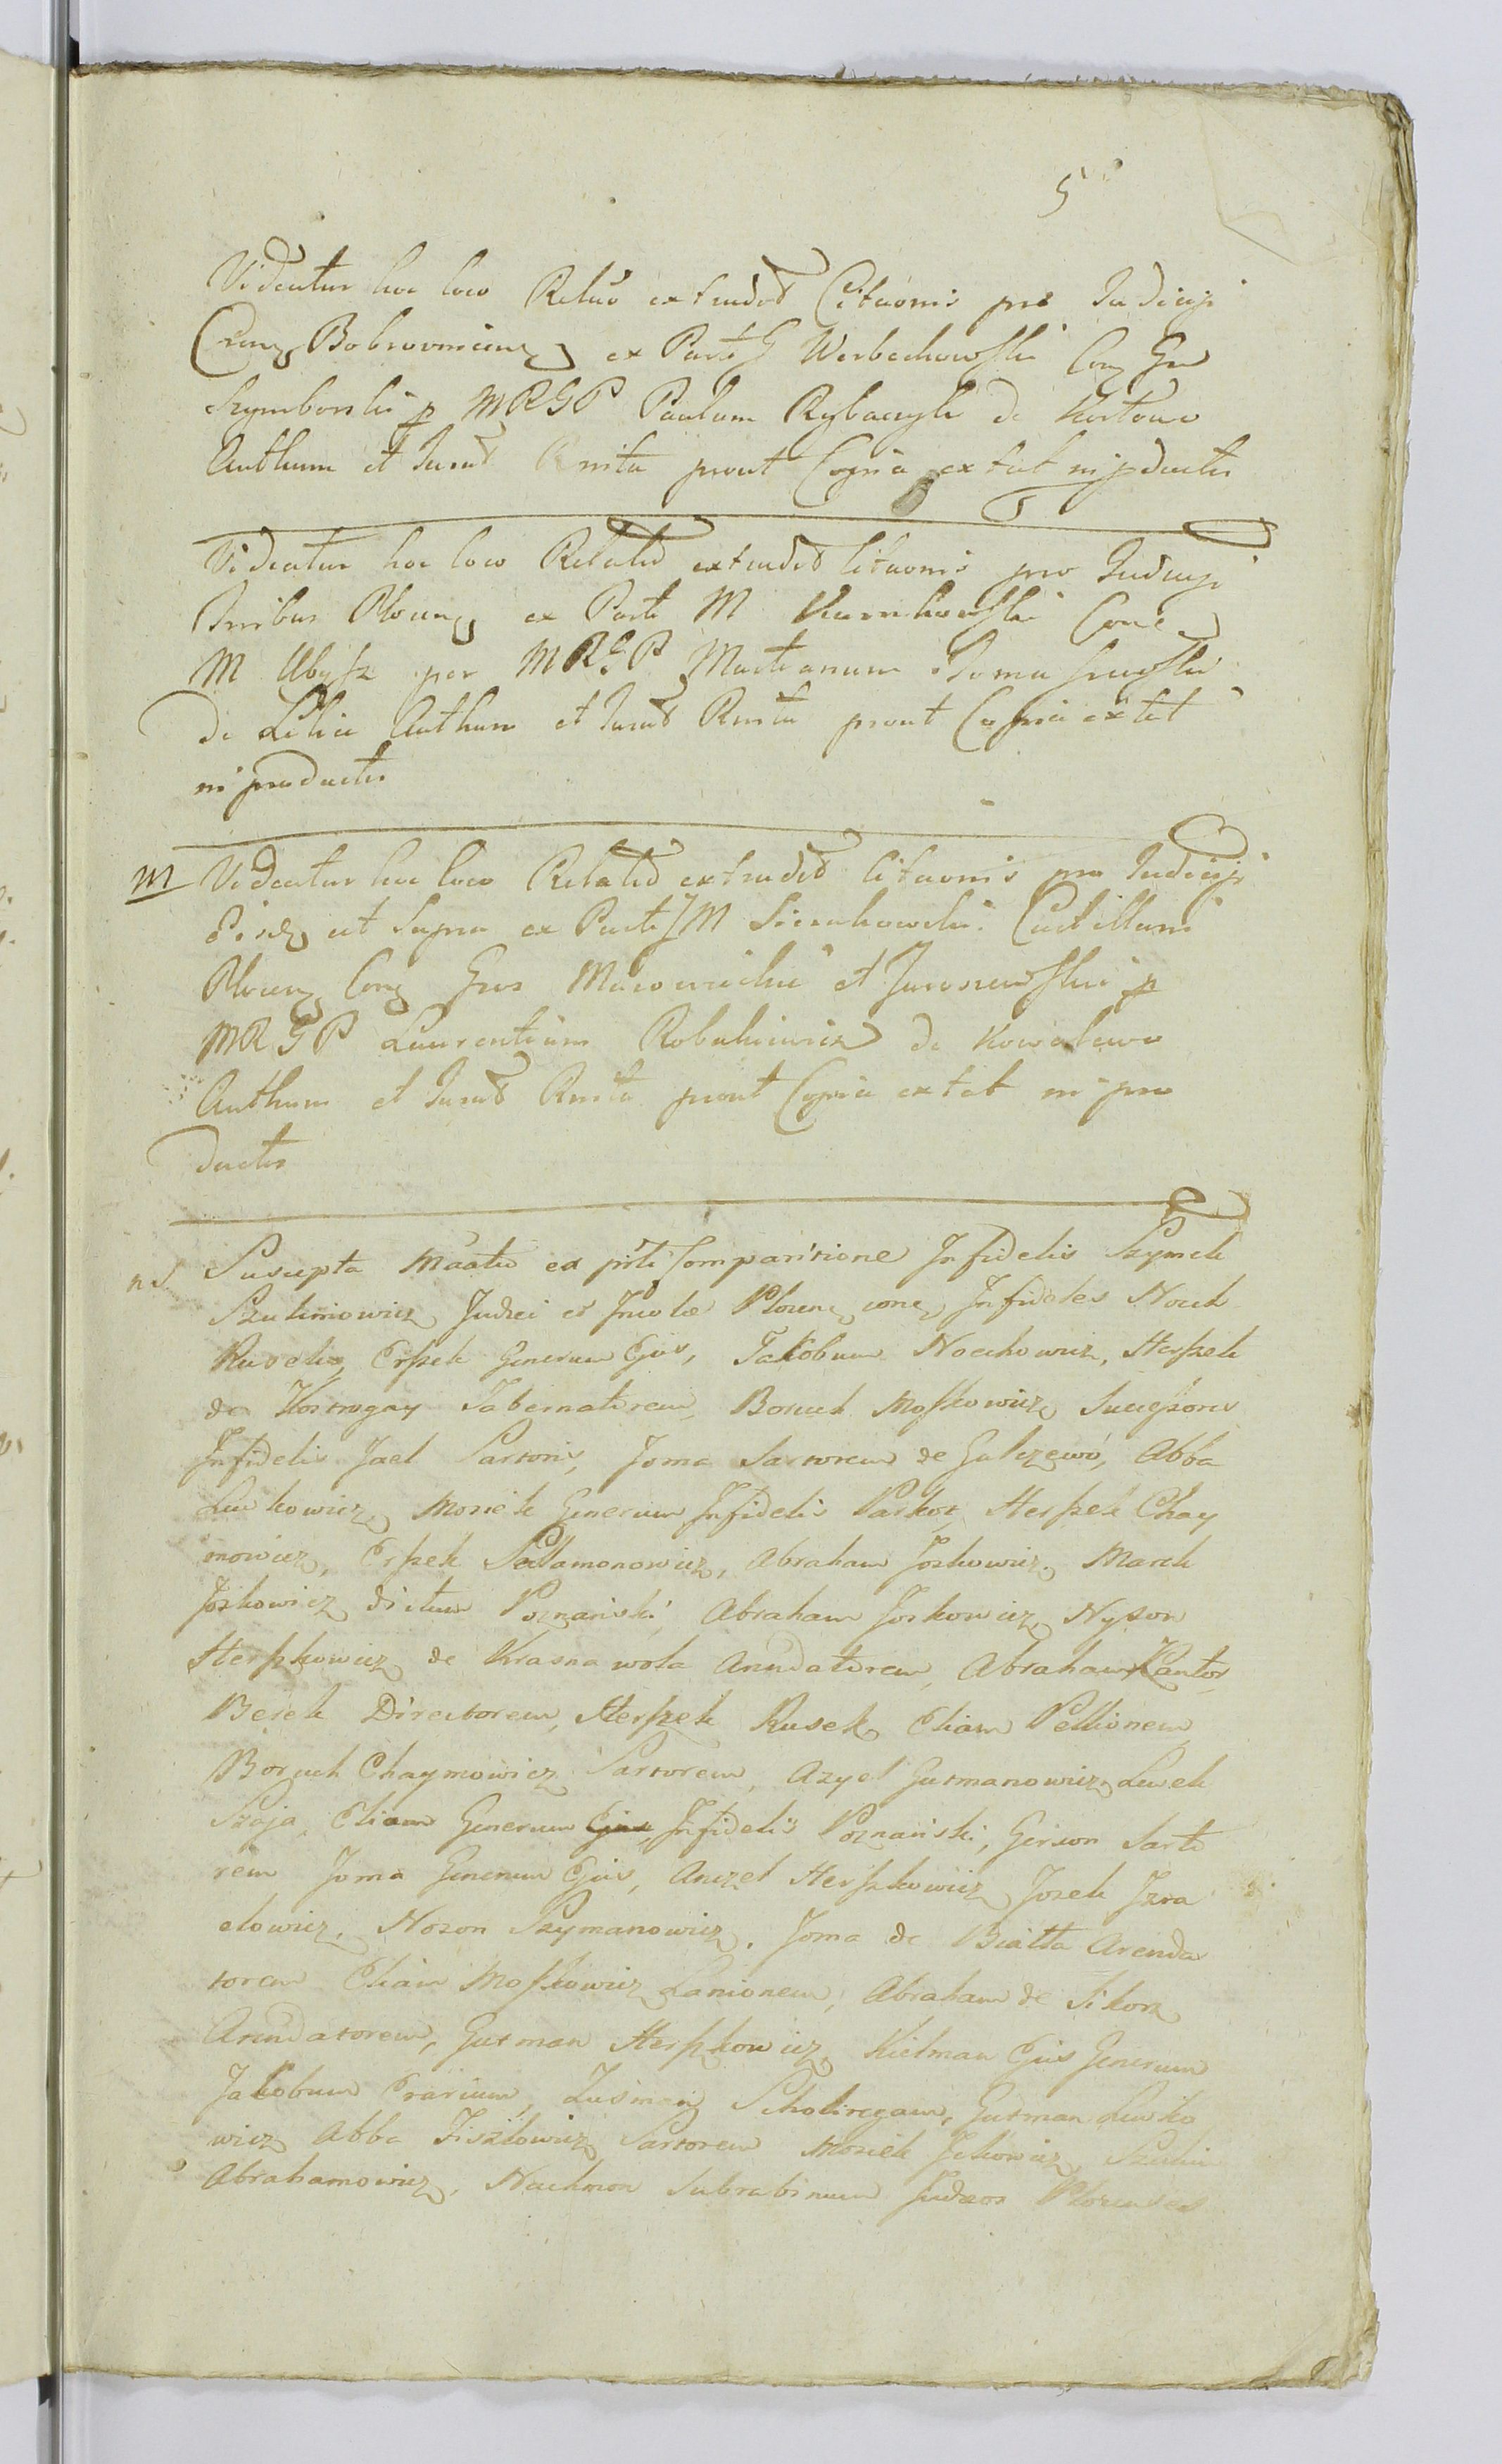 5
Videatur hoc loco Relao extradon Citaonis pro Judicijs
Cren Bobrovnicen ex Parte G Werbechowski Con Gn
Szymborski p MRGP Paulum Rybaczyk de
Authum et Jurat Rnita prout Copia extat in pductis
Videatur hoc loco Relatio extradon Citaonis pro Judicijs
Plocen ex Parte M Karnkowski Con
M Ubysz per MRGP Martianum
de Authum et Jurat Rnita prout Copia extat
in productis
M Videatur hoc loco Relatio extradon Citaonis pro Judicijs
eisd ut Supra ex Parte JM Sierakowski Castellani
Plocen Con Gnos Mazowiecki et p
MRGP Laurentium Robakiewicz de Kowalewo
Authum et Jurat Rnita prout Copia extat in pro
ductis
ns Suscepta Maatio ex pnti Comparitione Infidelis Szymek
Szulimowicz Judei et Incolæ Plocen con Infideles Noech
Rusek, Erszek Generum Ejus, Jakobum Noechowicz, Herszek
de Kostrogay Tabernatorem, Boruch Moszkowicz Sucessores
Infidelis Jael Sartoris, Joma Sartorem de Gulczewo, Abba
Lewkowicz, Mosiek Generum Infidelis Paskos, Herszek Chay
mowicz, Erszek Sallamonowicz, Abraham Joskowicz, Marek
Joskowicz dictum Poznański, Abraham Joskowicz, Nyson
Herszkowicz de Krasna wola Arendatorem, Abraham Kantor,
Berek Directorem, Herszek Rusek, Eliam Pellionem
Boruch Chaymowicz Sartorem, Azyel Gutmanowicz, Lewek
Szaja, Eliam Generum Ejus Infidelis Poznański, Gerson Sarto
rem Joma Generum Ejus, Anczel Herszkowicz, Josek Izra
elowicz, Nozon Szymanowicz, Joma de Biała Arenda
torem Eliam Moszkowicz Lanionem, Abraham de Sikorz
Arendatorem, Gutman Herszkowicz, Kielman Ejus Generum
Jakobum Erarium, Zusman Scholiregam, Gutman Lewko
wicz Abba Fiszlowicz Sartorem Mosiek Ickowicz,
Abrahamowicz, Nachman Subrabinum Judæos Plocenses